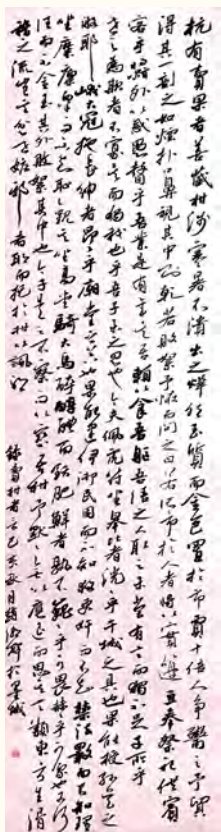 杭有賣果者善藏柑涉寒暑不潰出之燁然玉質而金色置於市賈十倍人爭鬻之予貿
得其一剖之如煙撲口鼻視其中則乾若敗絮予怪而問之曰若所市於人者將以實籩豆奉祭祀供賓
客乎將衒外以惑愚瞽乎吾業是有年矣吾賴是以食吾軀吾售之人取之未嘗有言而獨不足子所乎
世之為欺者不寡矣而獨我也乎吾子未之思也今夫佩虎符坐皋比者洸洸乎干城之具也果能授孫吳之
略耶峨大冠拖長紳者昂昂乎廟堂之器也果能建伊御民困而不知救吏奸而不知禁法斁而不知理
坐糜廩粟而不知恥觀其坐高堂騎大馬醉醇醴而飫肥鮮者孰不巍巍乎可畏赫赫乎可象也又何
往而不金玉其外敗絮其中也哉今子是之不察而以察吾柑予默默無以應退而思其言類東方生滑
稽之流豈其忿世嫉邪者耶而託於柑以諷耶
錄賣柑者言己亥秋月